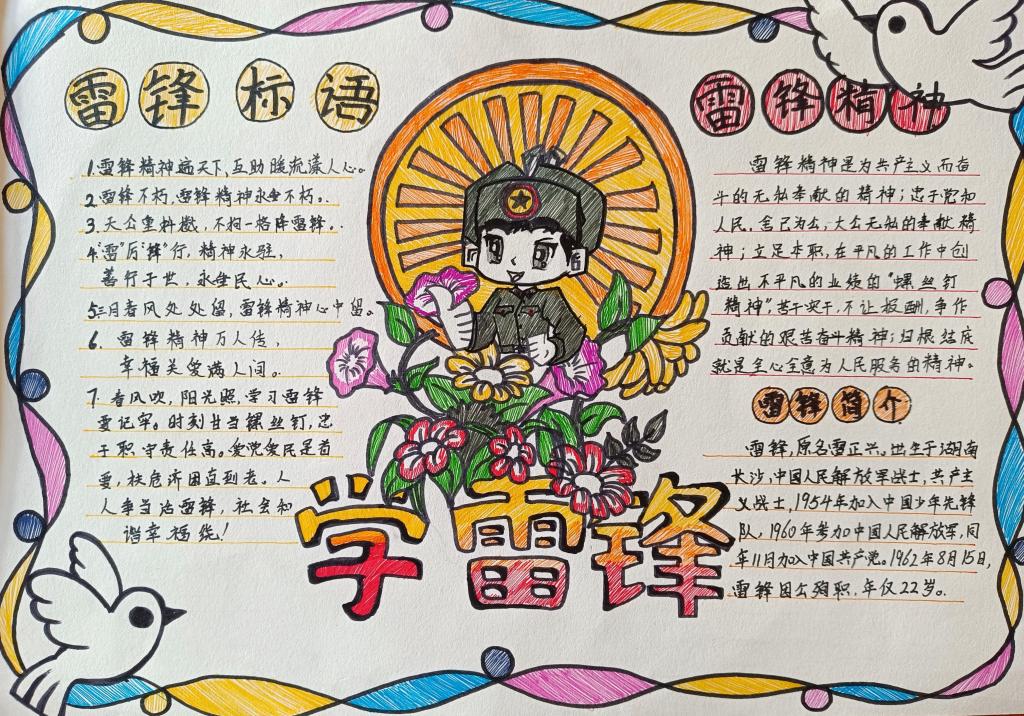 雷锋标语
1.雷锋精神遍天下,互助暖流漾人心。
2.雷锋不朽,雷锋精神永垂不朽。
3.天公重抖擞,不拘一格降雷锋。
4."雷"厉"锋"行,精神永驻,
善行于世,永垂民心。
5.三月春风处处留,雷锋精神心中留。
6.雷锋精神万人传,
幸福关爱满人间。
7.春风吹,阳光照,学习雷锋
要记牢。时刻甘当螺丝钉,忠
于职守责任高。爱党爱民是首
要,扶危济困直到老。人
人争当活雷锋,社会和
谐幸福绕!
学雷锋
雷锋精神
雷锋精神是为共产主义而奋
斗的无私奉献的精神;忠于党和
人民、舍己为公,大公无私的奉献精
神;立足本职,在平凡的工作中创
造出不平凡的业绩的"螺丝钉
精神"苦干实干,不计报酬,争作
贡献的艰苦奋斗精神;归根结底
就是全心全意为人民服务的精神。
雷锋简介
雷锋,原名雷正兴,出生于湖南
长沙,中国人民解放军战士,共产主
义战士,1954年加入中国少年先锋
队,1960年参加中国人民解放军,同
年11月加入中国共产党。1962年8月15日,
雷锋因公殉职,年仅22岁。